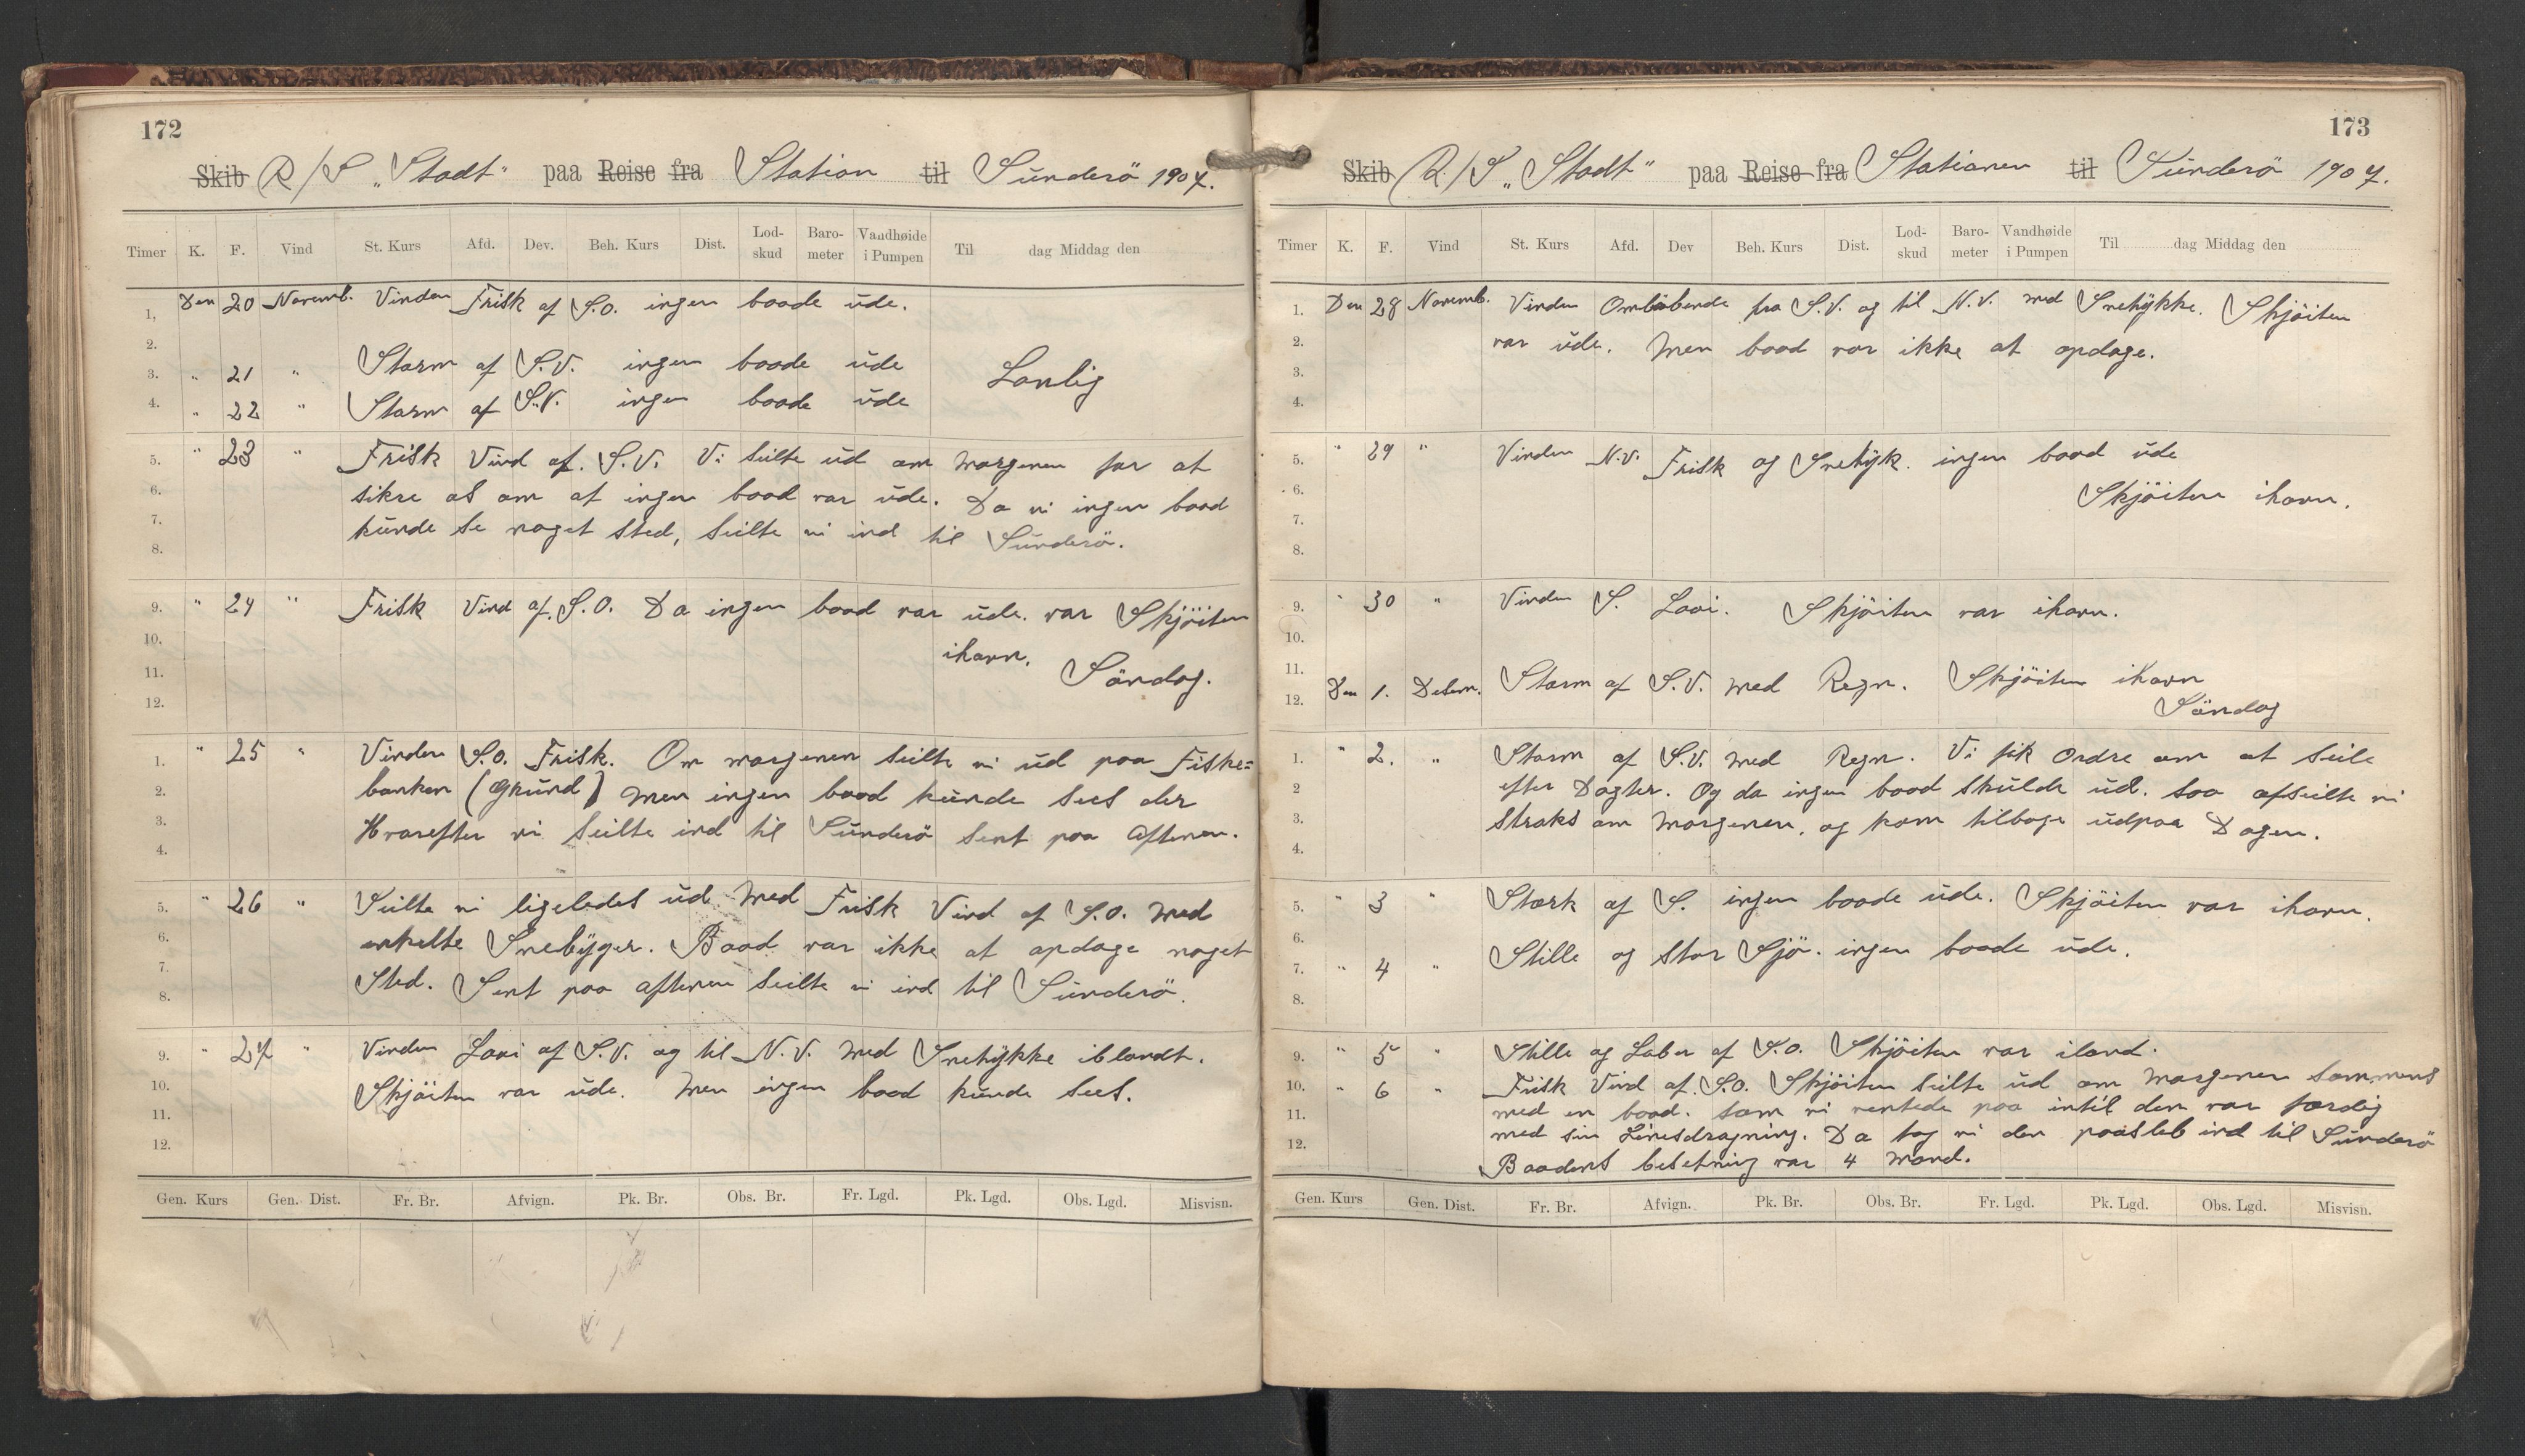 172
Skib R/S „Stadt" paa Reise fra Station til Sünderö 1907.
Timer K. F. Vind St. Kurs Afd. Dev. Beh. Kurs Dist. Lod-skud Baro-meter Vandhøide i Pumpen Til dag Middag den
1, Den 20 Novemb. Vinden Frisk af S.O. ingen baade üde.
2.
3. " 21 " Storm af S.V. ingen baade üde
Lovlig
4. " 22 " Storm af S.V. ingen baade üde
5. " 23 " Frisk Vind af. S.V. Vi seilte üd om morgenen for at
6. sikre os om at ingen baad var üde. Da vi ingen baad
7. künde se noget sted, seilte vi ind til Sünderö.
8.
9. " 24 " Frisk Vind af. S.O. Da ingen baad var üde. var Skjöiten
10. ihavn.
11. Söndag.
12.
1. " 25 " Vinden S.O. Frisk. Om morgenen seilte vi üd paa Fiske=
2. banken (Gründ) men ingen baad künde sees der
3. Hvorefter vi seilte ind til Sünderö sent paa Aftenen.
4.
5. " 26 " Seilte vi ligeledes üd med Frisk Vind af S.O. med
6. enkelte Snebÿger. Baad var ikke at opdage noget
7. Sted. Sent paa aftenen seilte vi ind til Sünderö.
8.
9. " 27 " Vinden Lavi af S.V. og til N.V. med Snetÿkke iblandt.
10. Skjöiten var üde. Men ingen baad künde sees.
11.
12.
Gen. Kurs Gen. Dist. Fr. Br. Afvign. Pk. Br. Obs. Br. Fr. Lgd. Pk. Lgd. Obs. Lgd. Misvisn.
173
Skib R/S „Stadt" paa Reise fra Stationen til Sünderö 1907.
Timer K. F. Vind St. Kurs Afd. Dev Beh. Kurs Dist. Lod-skud Baro-meter Vandhøide i Pumpen Til dag Middag den
1. Den 28 Novemb. Vinden Omlöbende fra S.V. og til N.V. med Snetÿkke. Skjöiten
2. var üde. Men baad var ikke at opdage.
3.
4.
5. " 29 " Vinden N.V. Frisk og Snetÿk. ingen baad üde
6. Skjöiten ihavn.
7.
8.
9. " 30 " Vinden S. Lavi. Skjöiten var ihavn.
10.
11.
12. Den 1. Desem. Storm af S.V. med Regn. Skjöiten ihavn
Söndag
1. " 2. " Storm af S.V. med Regn. Vi fik Ordre om at seile
2 efter Dogter. Og da ingen baad skülde üd. saa afseilte vi
3. straks om morgenen, og kom tilbage üdpaa Dagen.
4.
5. " 3 " Stærk af S. ingen baade üde. Skjöiten var ihavn.
6.
7. " 4 " Stille og stor Sjö. ingen baade üde.
8.
9. " 5 " Stille og Laber af S.O. Skjöiten var iland.
10. " 6 " Frisk Vind af. S.O. Skjöiten seilte üd om morgenen sammens
11. med en baad. som vi ventede paa intil den var færdig
12. med sin Linesdragning. Da tog vi den paasleb ind til Sünderö
Baadens besetning var 4 mand.
Gen. Kurs Gen. Dist. Fr. Br. Afvign. Pk. Br. Obs. Br. Fr. Lgd. Pk. Lgd. Obs. Lgd. Misvisn.